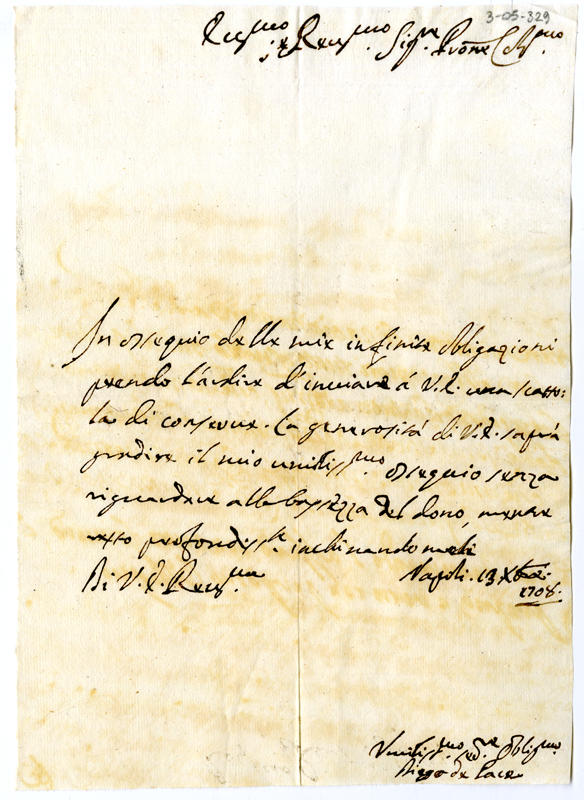 3-05-329
Sig.re P.rone Col.mo
In ossequio delle mie infinite obligazioni
prendo l'ardire d'inviare á V.E. una scatto:
la di conserve. La generosità di V.E. saprà
gradire il mio umiliss.mo ossequio senza
riguardare alla bassezza del dono, mentre
resto profondiss.te inchinandomeli
Di V.E. Rev.ma
Napoli. 13 Xbre.
1708.
Umiliss.mo ser.re Oblig.mo
Diego de Pace